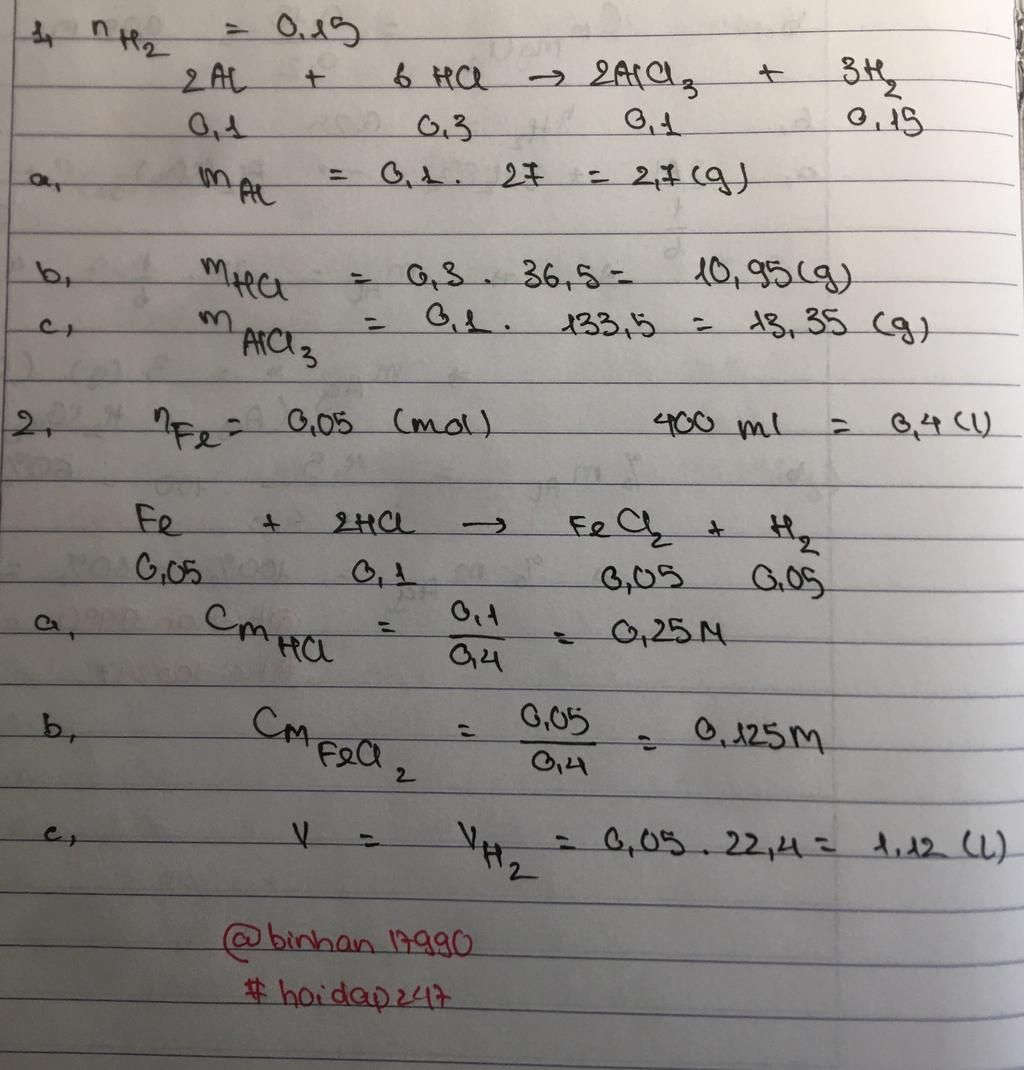 1, nH₂ = 0,15
2Al + 6 HCl → 2AlCl₃ + 3H₂
0,1 0,3 0,1 0,15
a, mAl = 0,1 . 27 = 2,7 (g)
b, mHCl = 0,3 . 36,5 = 10,95 (g)
c, mAlCl₃ = 0,1 . 133,5 = 13,35 (g)
2, nFe = 0,05 (mol) 400 ml = 0,4 (l)
Fe + 2HCl → FeCl₂ + H₂
0,05 0,1 0,05 0,05
a, CmHCl = 0,1/0,4 = 0,25M
b, CmFeCl₂ = 0,05/0,4 = 0,125M
c, V = VH₂ = 0,05 . 22,4 = 1,12 (l)
@binhan17990
#hoidap247